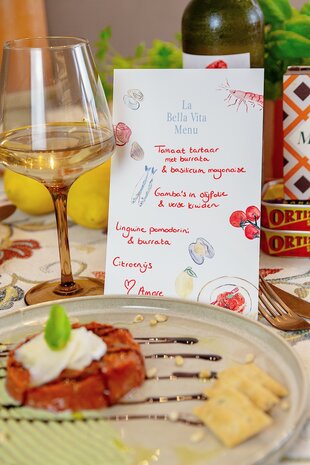 La
Bella Vita
Menu
Tomaat tartaar
met burrata
& basilicum mayonaise
Gamba's in olijfolie
& verse kruiden
Linguine pomodorini
& burrata
Citroenijs
Amore
ORTIZ
ORTIZ